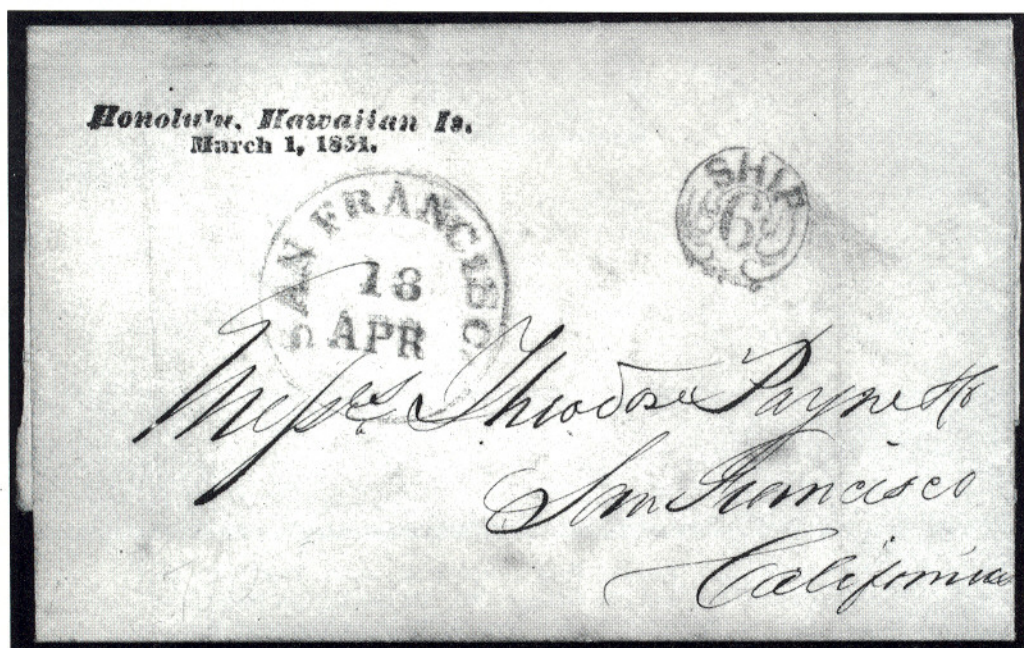 Honolulu, Hawaiian Is.
March 1, 1851.
SHIP
6
SAN FRANCISCO
18
APR
Messrs Theodore Payne & Co
San Francisco
California